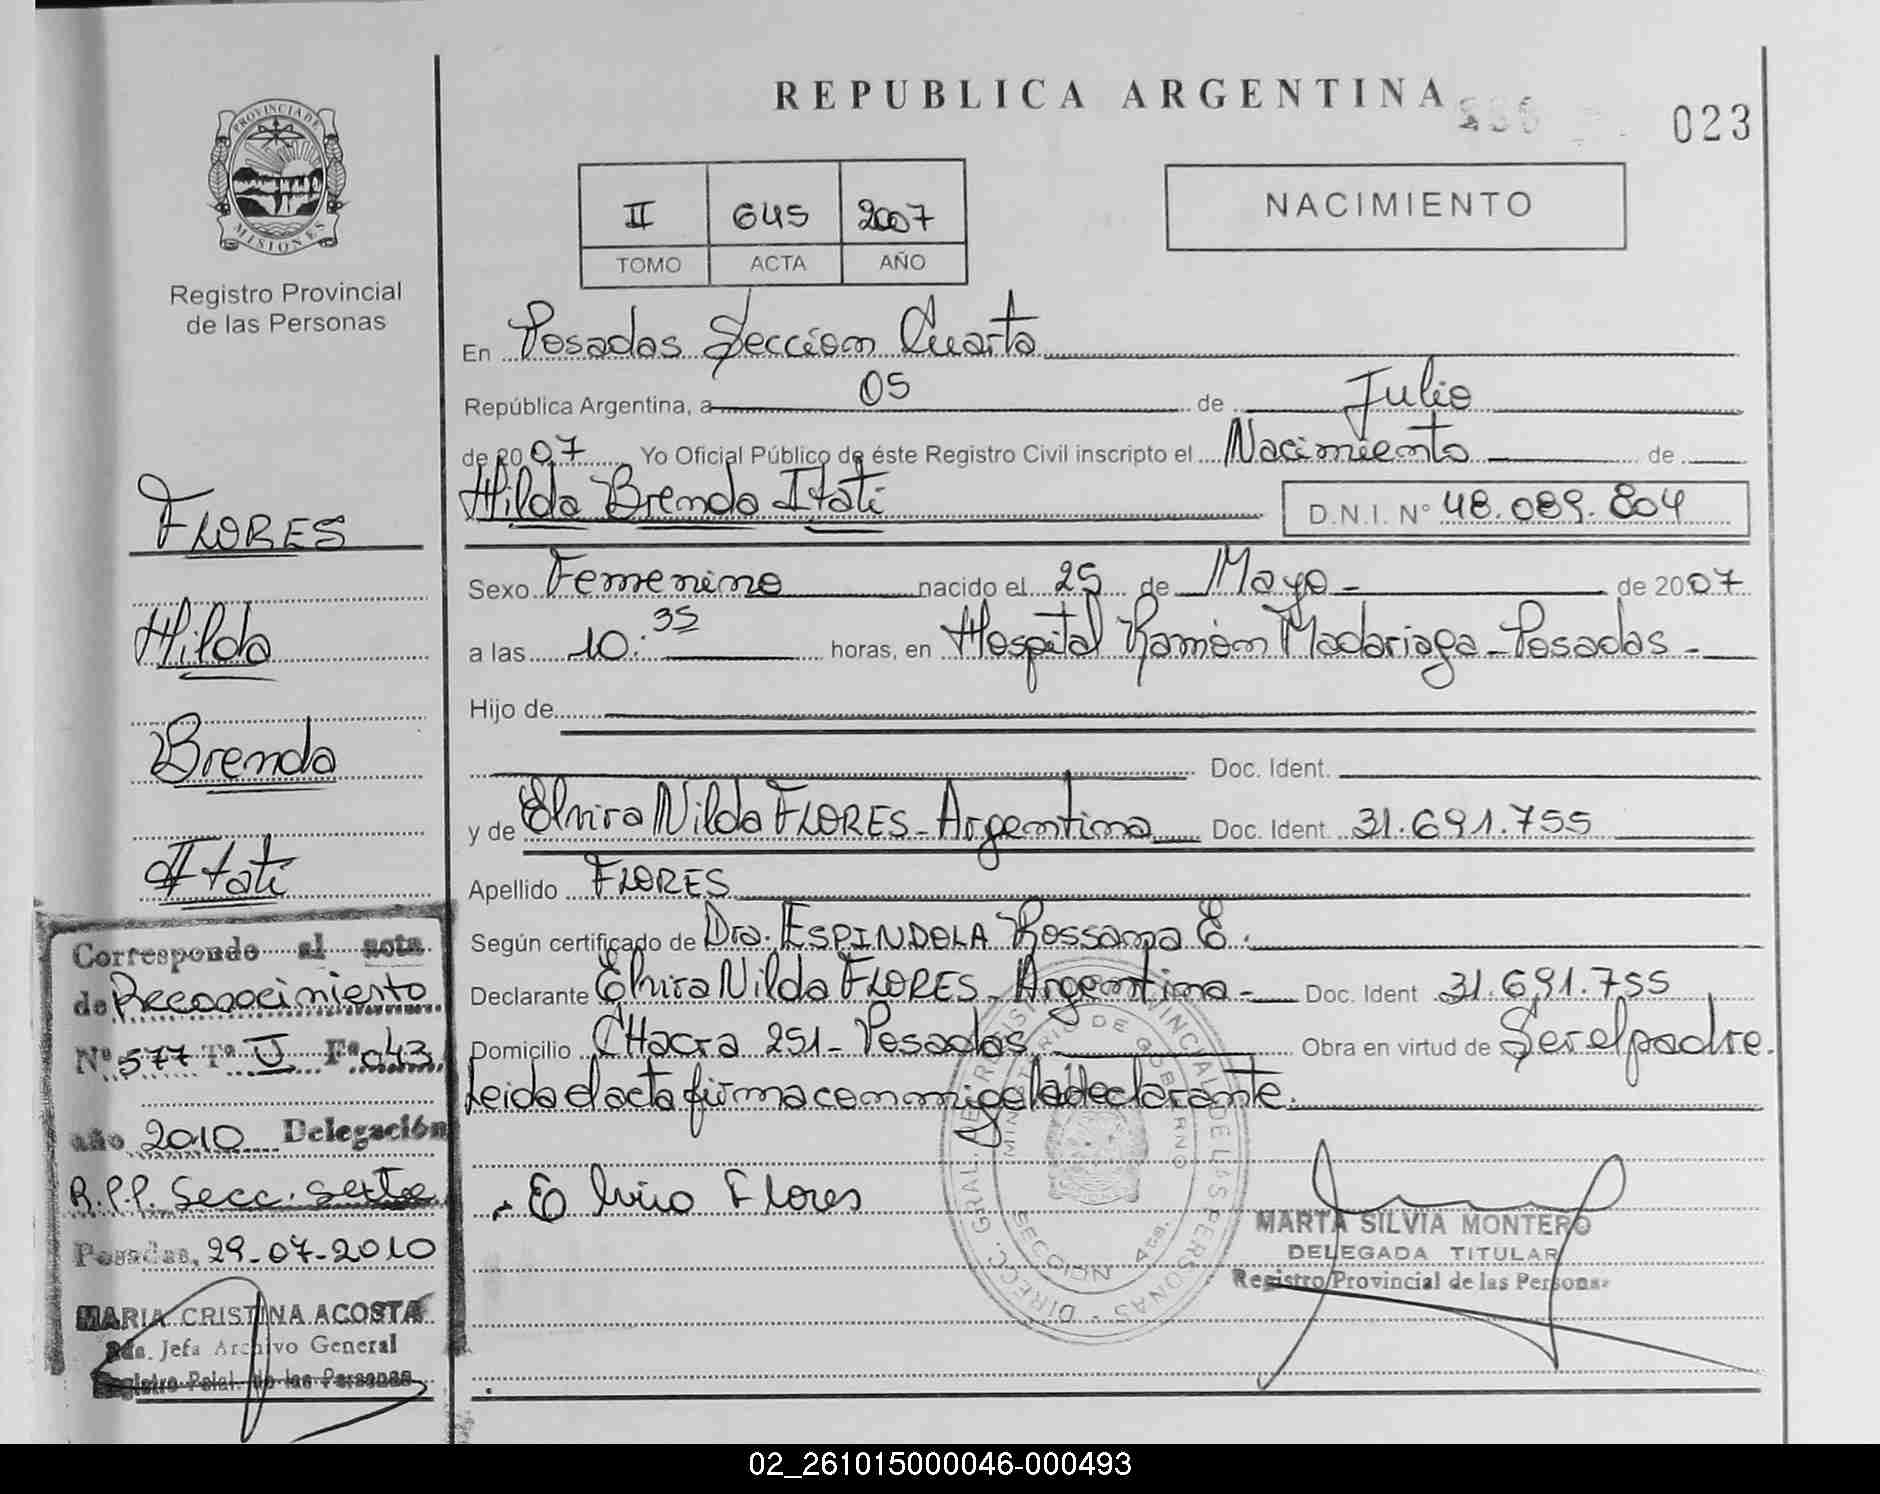 REPUBLICA ARGENTINA
023
PROVINCIA DE MISIONES
Registro Provincial
de las Personas
II 645 2007
TOMO ACTA AÑO
NACIMIENTO
En Posadas Sección Cuarta
República Argentina, a 05 de Julio
de 2007 Yo Oficial Público de éste Registro Civil inscripto el Nacimiento de
Hilda Brenda Itati D.N.I. N° 48.089.804
Sexo Femenino nacido el 25 de Mayo - de 2007
a las 10:35 horas, en Hospital Ramón Madariaga - Posadas -
Hijo de
Doc. Ident.
y de Elvira Nilda FLORES - Argentina Doc. Ident. 31.691.755
Apellido FLORES
Según certificado de Dra. ESPINDOLA Rossana E.
Declarante Elvira Nilda FLORES - Argentina - Doc. Ident 31.691.755
Domicilio CHacra 251 - Posadas Obra en virtud de Ser el padre.
Leida el acta firma conmigo la declarante.
Elvira Flores
MARTA SILVIA MONTERO
DELEGADA TITULAR
Registro Provincial de las Personas
DIRECC. GRAL. DEL REGISTRO PROVINCIAL DE LAS PERSONAS
MINISTERIO DE GOBIERNO
SECCION 4ta.
FLORES
Hilda
Brenda
Itati
Corresponde al nota
de Reconocimiento
N° 577 T° II F° 043
año 2010 Delegación
R.P.P. Secc. Sexta
Posadas, 29-07-2010
MARIA CRISTINA ACOSTA
Jefa Archivo General
de las Personas
02_261015000046-000493